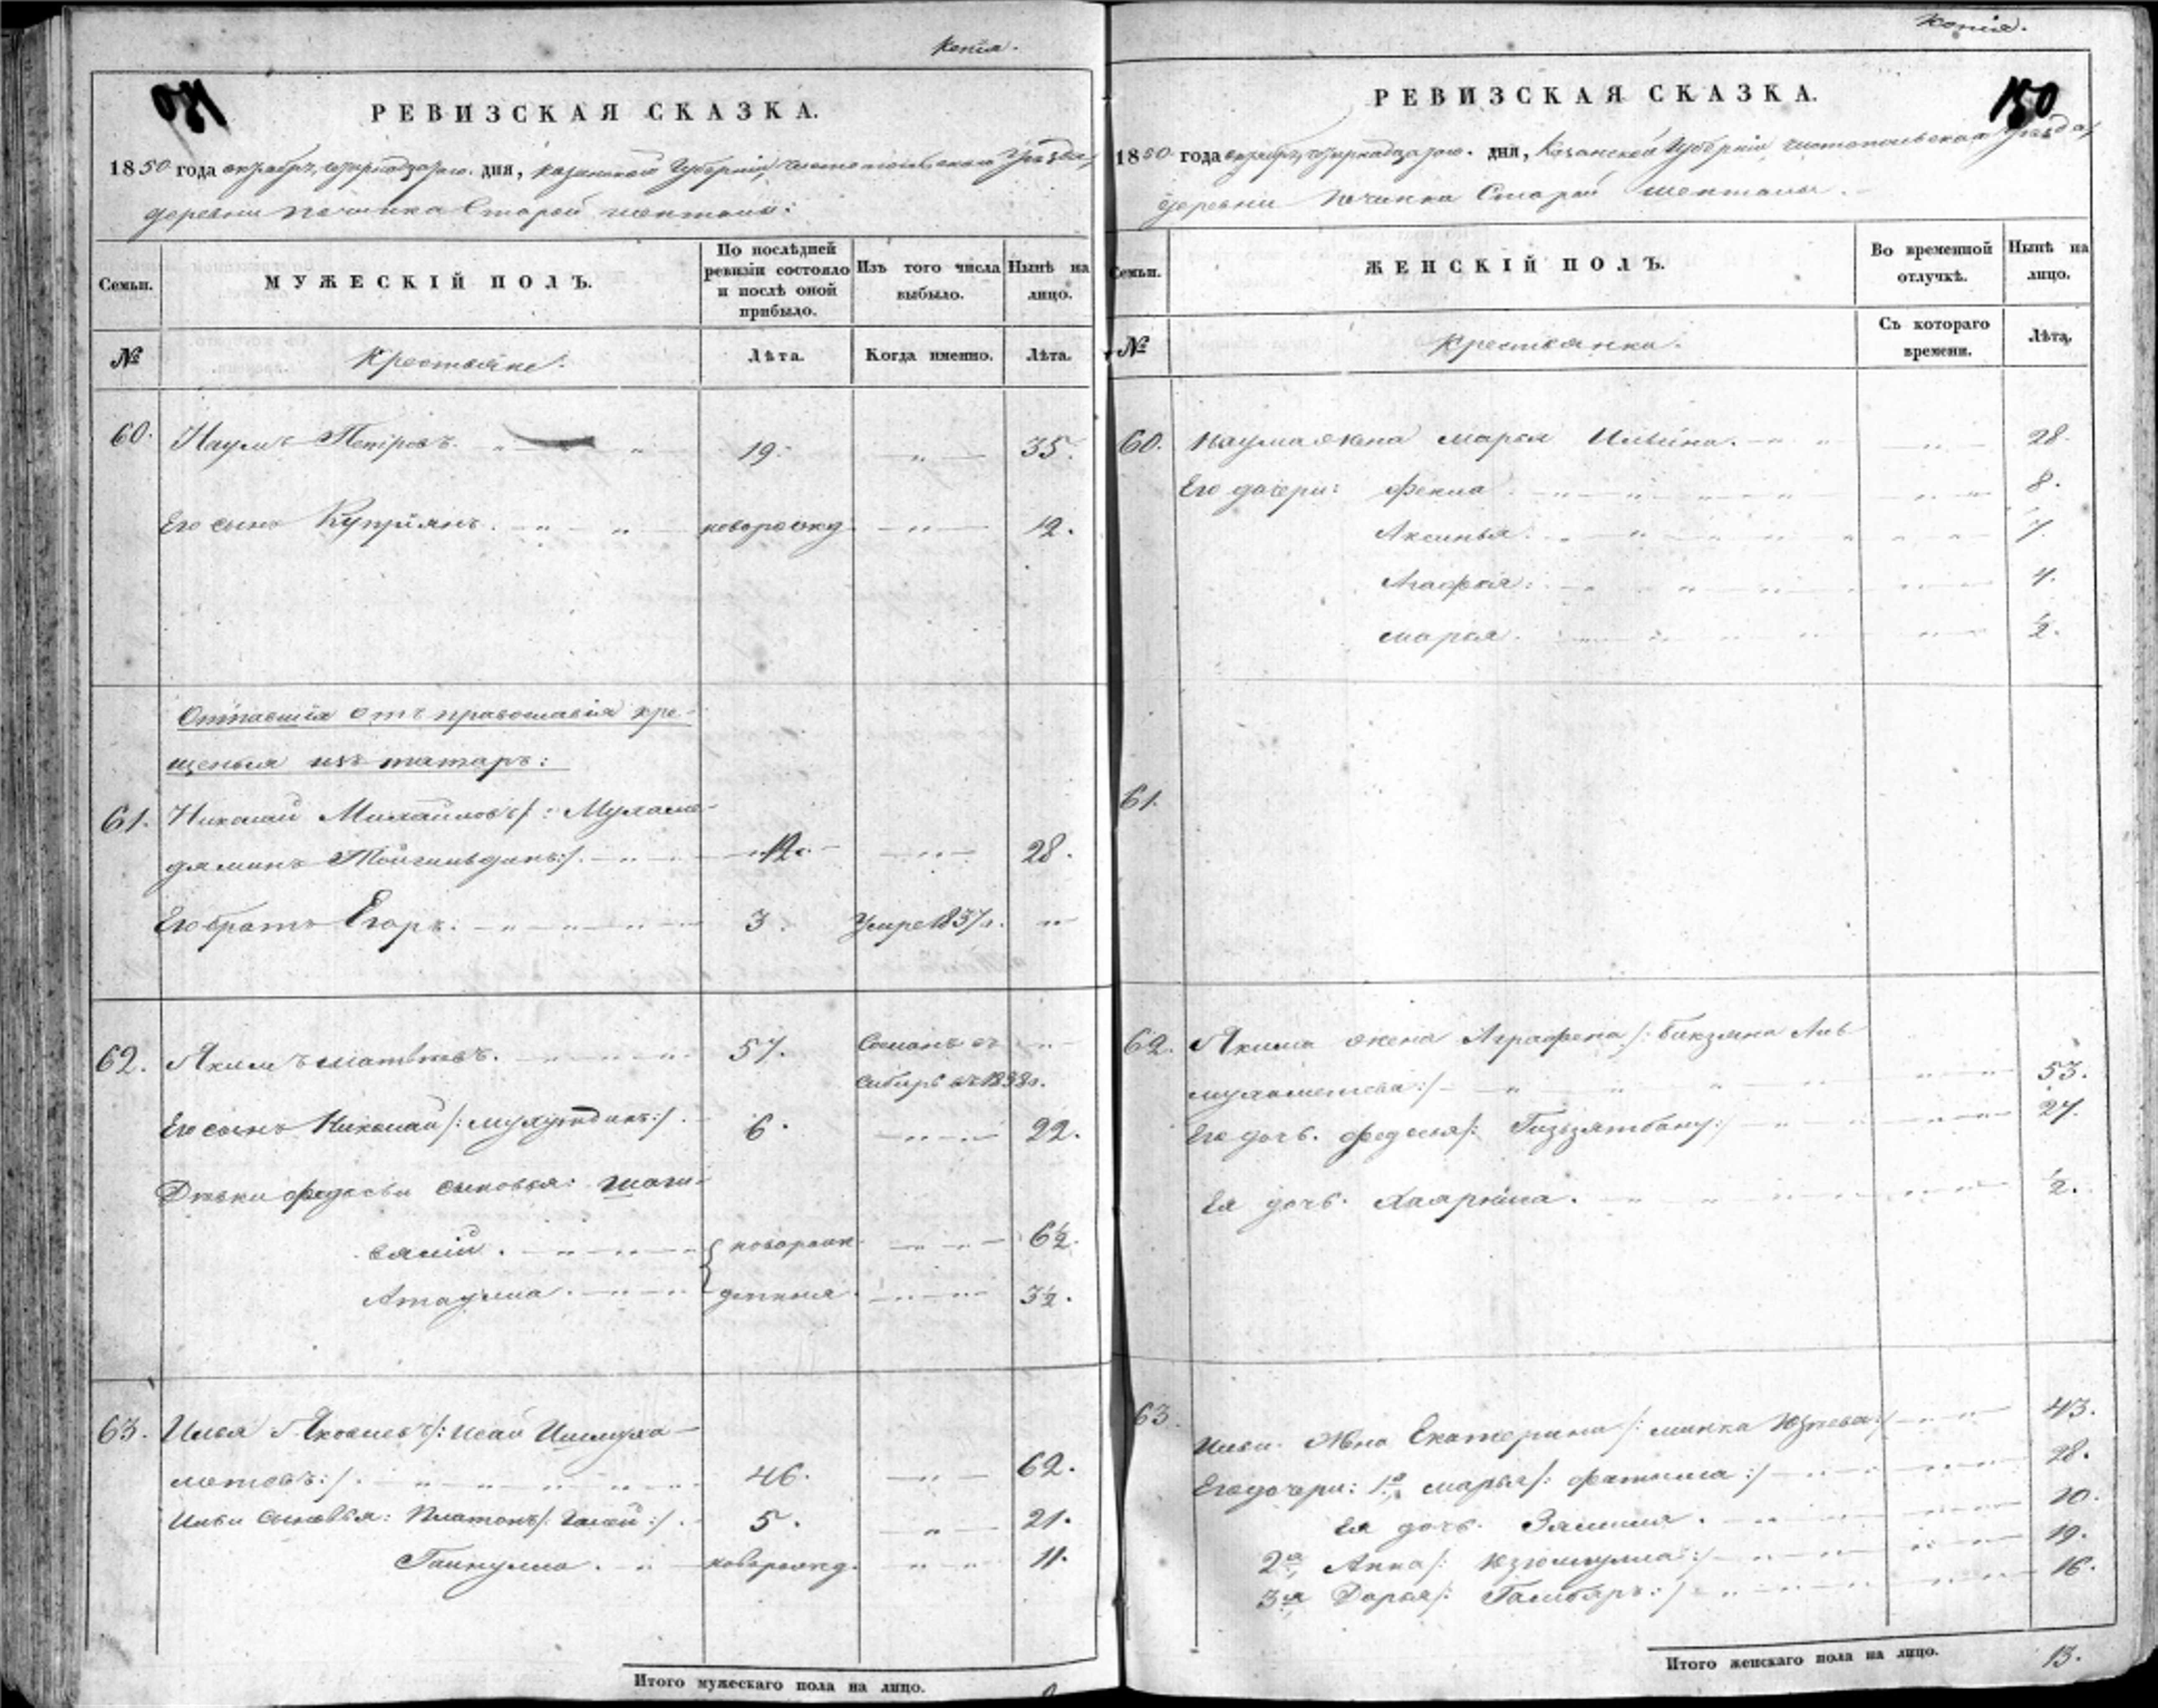 копія.
РЕВИЗСКАЯ СКАЗКА.
1850 года октября, четырнадцатого дня, Казанской Губерніи, Чистопольского Уезда,
деревни починка Старой шентала:
Семьи.
МУЖЕСКІЙ ПОЛЪ.
По послѣдней ревизіи состояло и послѣ оной прибыло.
Изъ того числа выбыло.
Нынѣ на лицо.
№
Крестьяне.
Лѣта.
Когда именно.
Лѣта.
60. Наумъ Петровъ 19. 35.
Его сынъ Купріянъ. новорожд. 12.
Отпавшія отъ православія кре-
щеныя изъ татаръ:
61. Николай Михайловъ /: Мухаме-
дяминъ :/. 12. 28.
Его братъ Егоръ. 3. Умре 1837 г.
62. Якимъ Матвѣевъ. 57. Сосланъ въ
Сибирь въ 1838 г.
Его сынъ Николай /: Мухутдинъ :/. 6. 22.
Дѣвки Федосьи сыновья: Шаги-
вялій. новорож- 6½.
Атаулла. денныя. 3½.
63. Илья Яковлевъ /: Исай Ишмуха-
метовъ :/. 46. 62.
Ильи сыновья: Платонъ /: Галей :/. 5. 21.
Гайнулла. новорожд. 11.
Итого мужескаго пола на лицо. 9
Копія.
150
РЕВИЗСКАЯ СКАЗКА.
1850 года октября, четырнадцатого дня, Казанской Губерніи Чистопольскаго Уезда,
деревни Починка Старой шенталы.
Семьи.
ЖЕНСКІЙ ПОЛЪ.
Во временной отлучкѣ.
Нынѣ на лицо.
№
Крестьянки.
Съ котораго времени.
Лѣта.
60. Наума жена Марья Ильина. 28.
Его дочери: Фекла 8.
Аксинья. 7.
Агафья. 4.
Марья. ½.
61.
62. Якима жена Аграфена /: Бикзяна Аль-
мухаметева :/ 53.
Его дочь. Федосья /: Гизьзятбану :/ 27.
Ея дочь. ½.
63. Ильи жена Екатерина /: :/ 43.
Его дочери: 1я Марья /: Фатыма :/ 28.
Ея дочь. Зялиля. 10.
2я Анна /: :/ 19.
3я Дарья /: :/ 16.
Итого женскаго пола на лицо. 13.